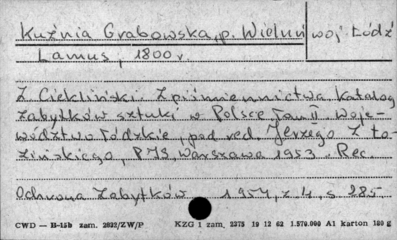 Kuźnia Grabowska, p. Wieluń woj. Łódź
Lamus, 1800 r.
Z. Ciekliński Z piśmiennictwa Katalog
zabytków sztuki w Polsce Tom II Woje-
wództwo łódzkie, pod red. Jerzego Z. Ło-
zińskiego, PIS, Warszawa 1953. Rec.
Ochrona Zabytków 1954, z 4, s 285
CWD — H-15b zam. 2822/ZW/P KZG 1 zam. 2375 19 12 62 1.570.000 A1 karton 180 g